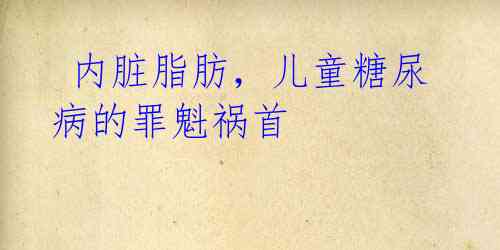 内脏脂肪，儿童糖尿
病的罪魁祸首